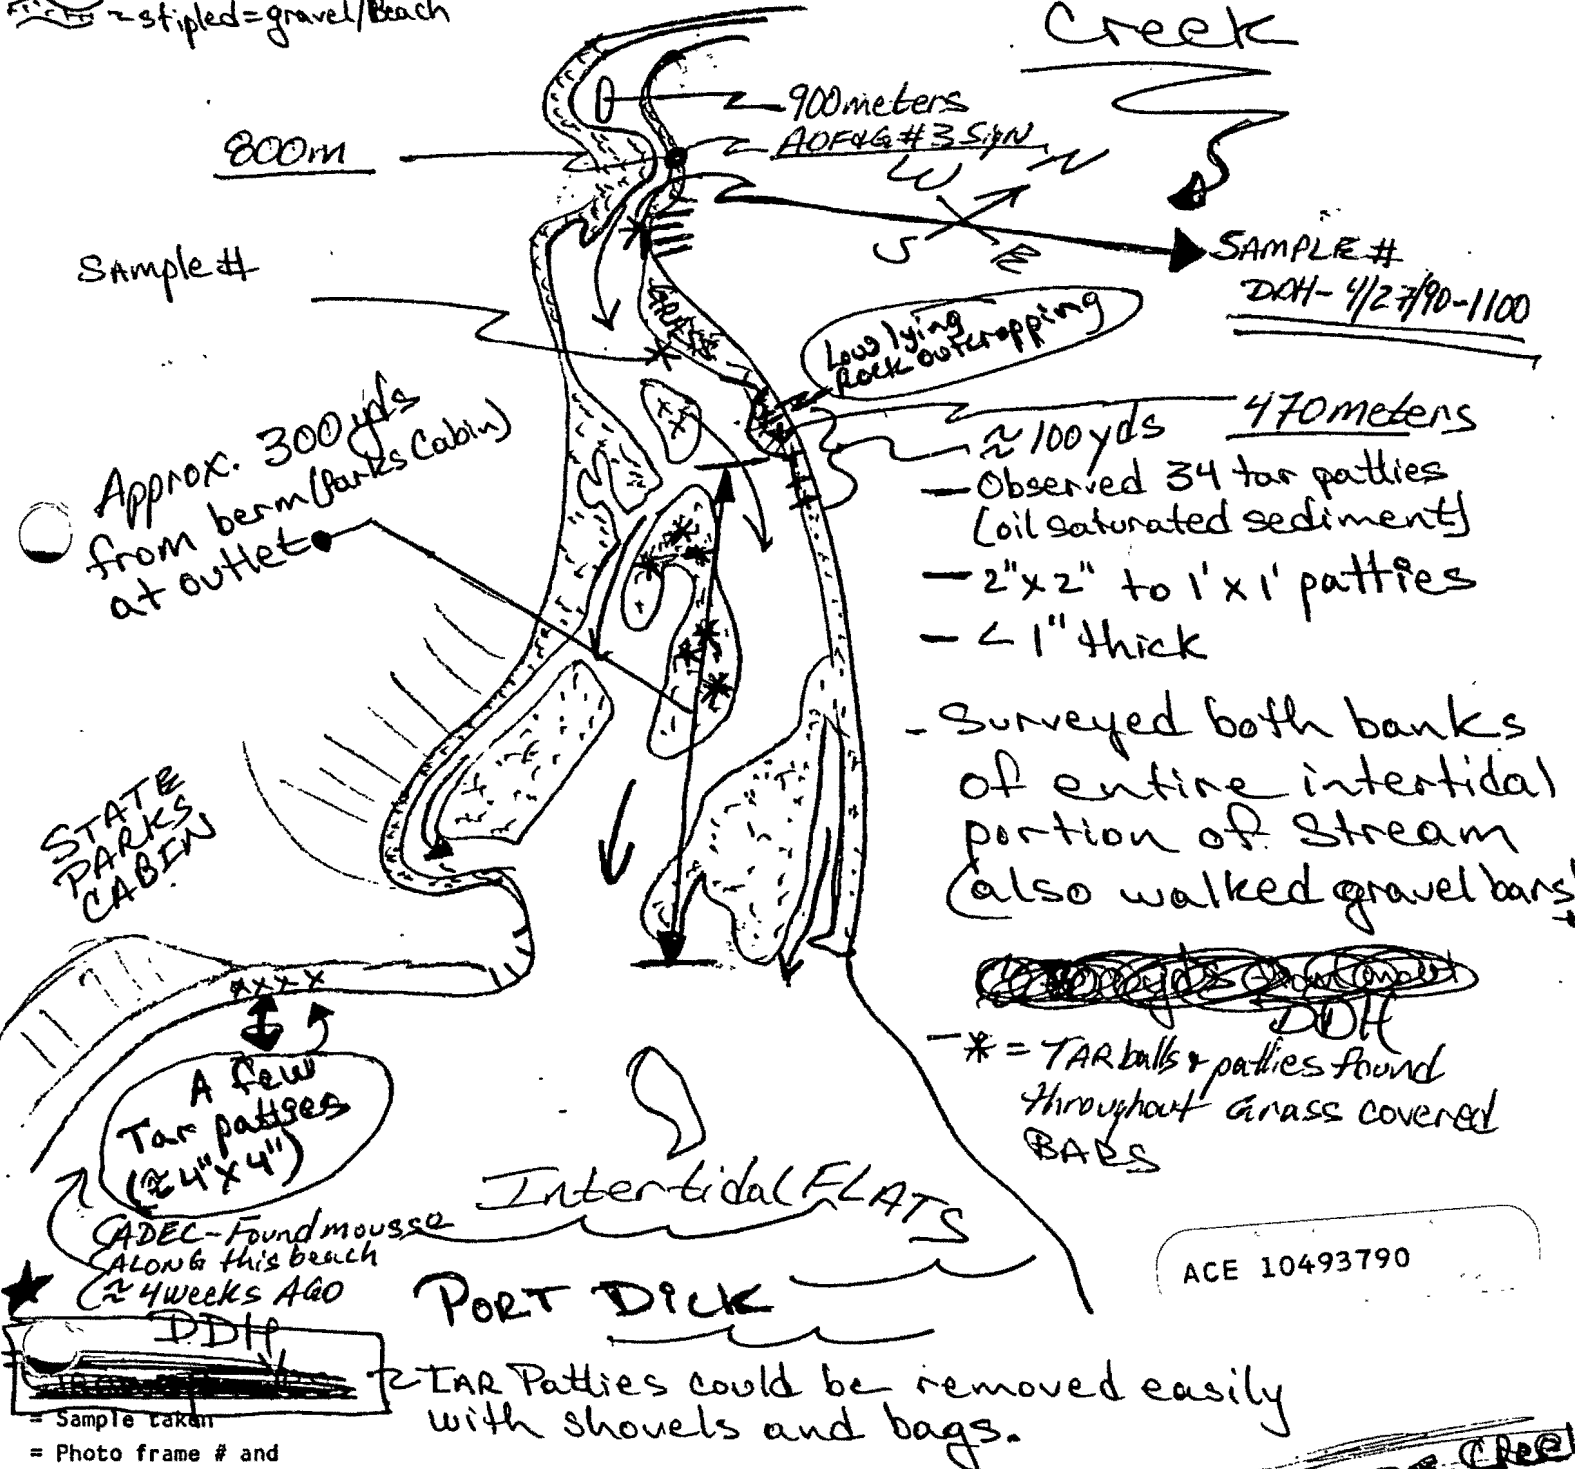 ~stipled=gravel/Beach
Creek
900 meters
ADF&G #3 Sign
800m
W N
S E
Sample #
SAMPLE #
DDH-4/27/90-1100
GRASS
Low lying
Rock outcropping
470 meters
Approx. 300 yds
from berm (Parks Cabin)
at outlet
≈100 yds
- Observed 34 tar patties
(oil saturated sediment)
- 2"x2" to 1'x1' patties
- < 1" thick
- Surveyed both banks
of entire intertidal
portion of Stream
(also walked gravel bars)
STATE
PARKS
CABIN
xxxx
DDH
- * = TAR balls & patties found
throughout Grass covered
BARS
A few
Tar patties
(≈4"x4")
Intertidal FLATS
ADEC-Found mousse
ALONG this beach
≈ 4 weeks AGO
PORT DICK
ACE 10493790
DDH
TAR Patties could be removed easily
with shovels and bags.
= Sample taken
= Photo frame # and
Creek